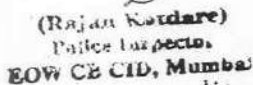 (Rajan Katdare)
Police Inspector
EOW CB CID, Mumbai